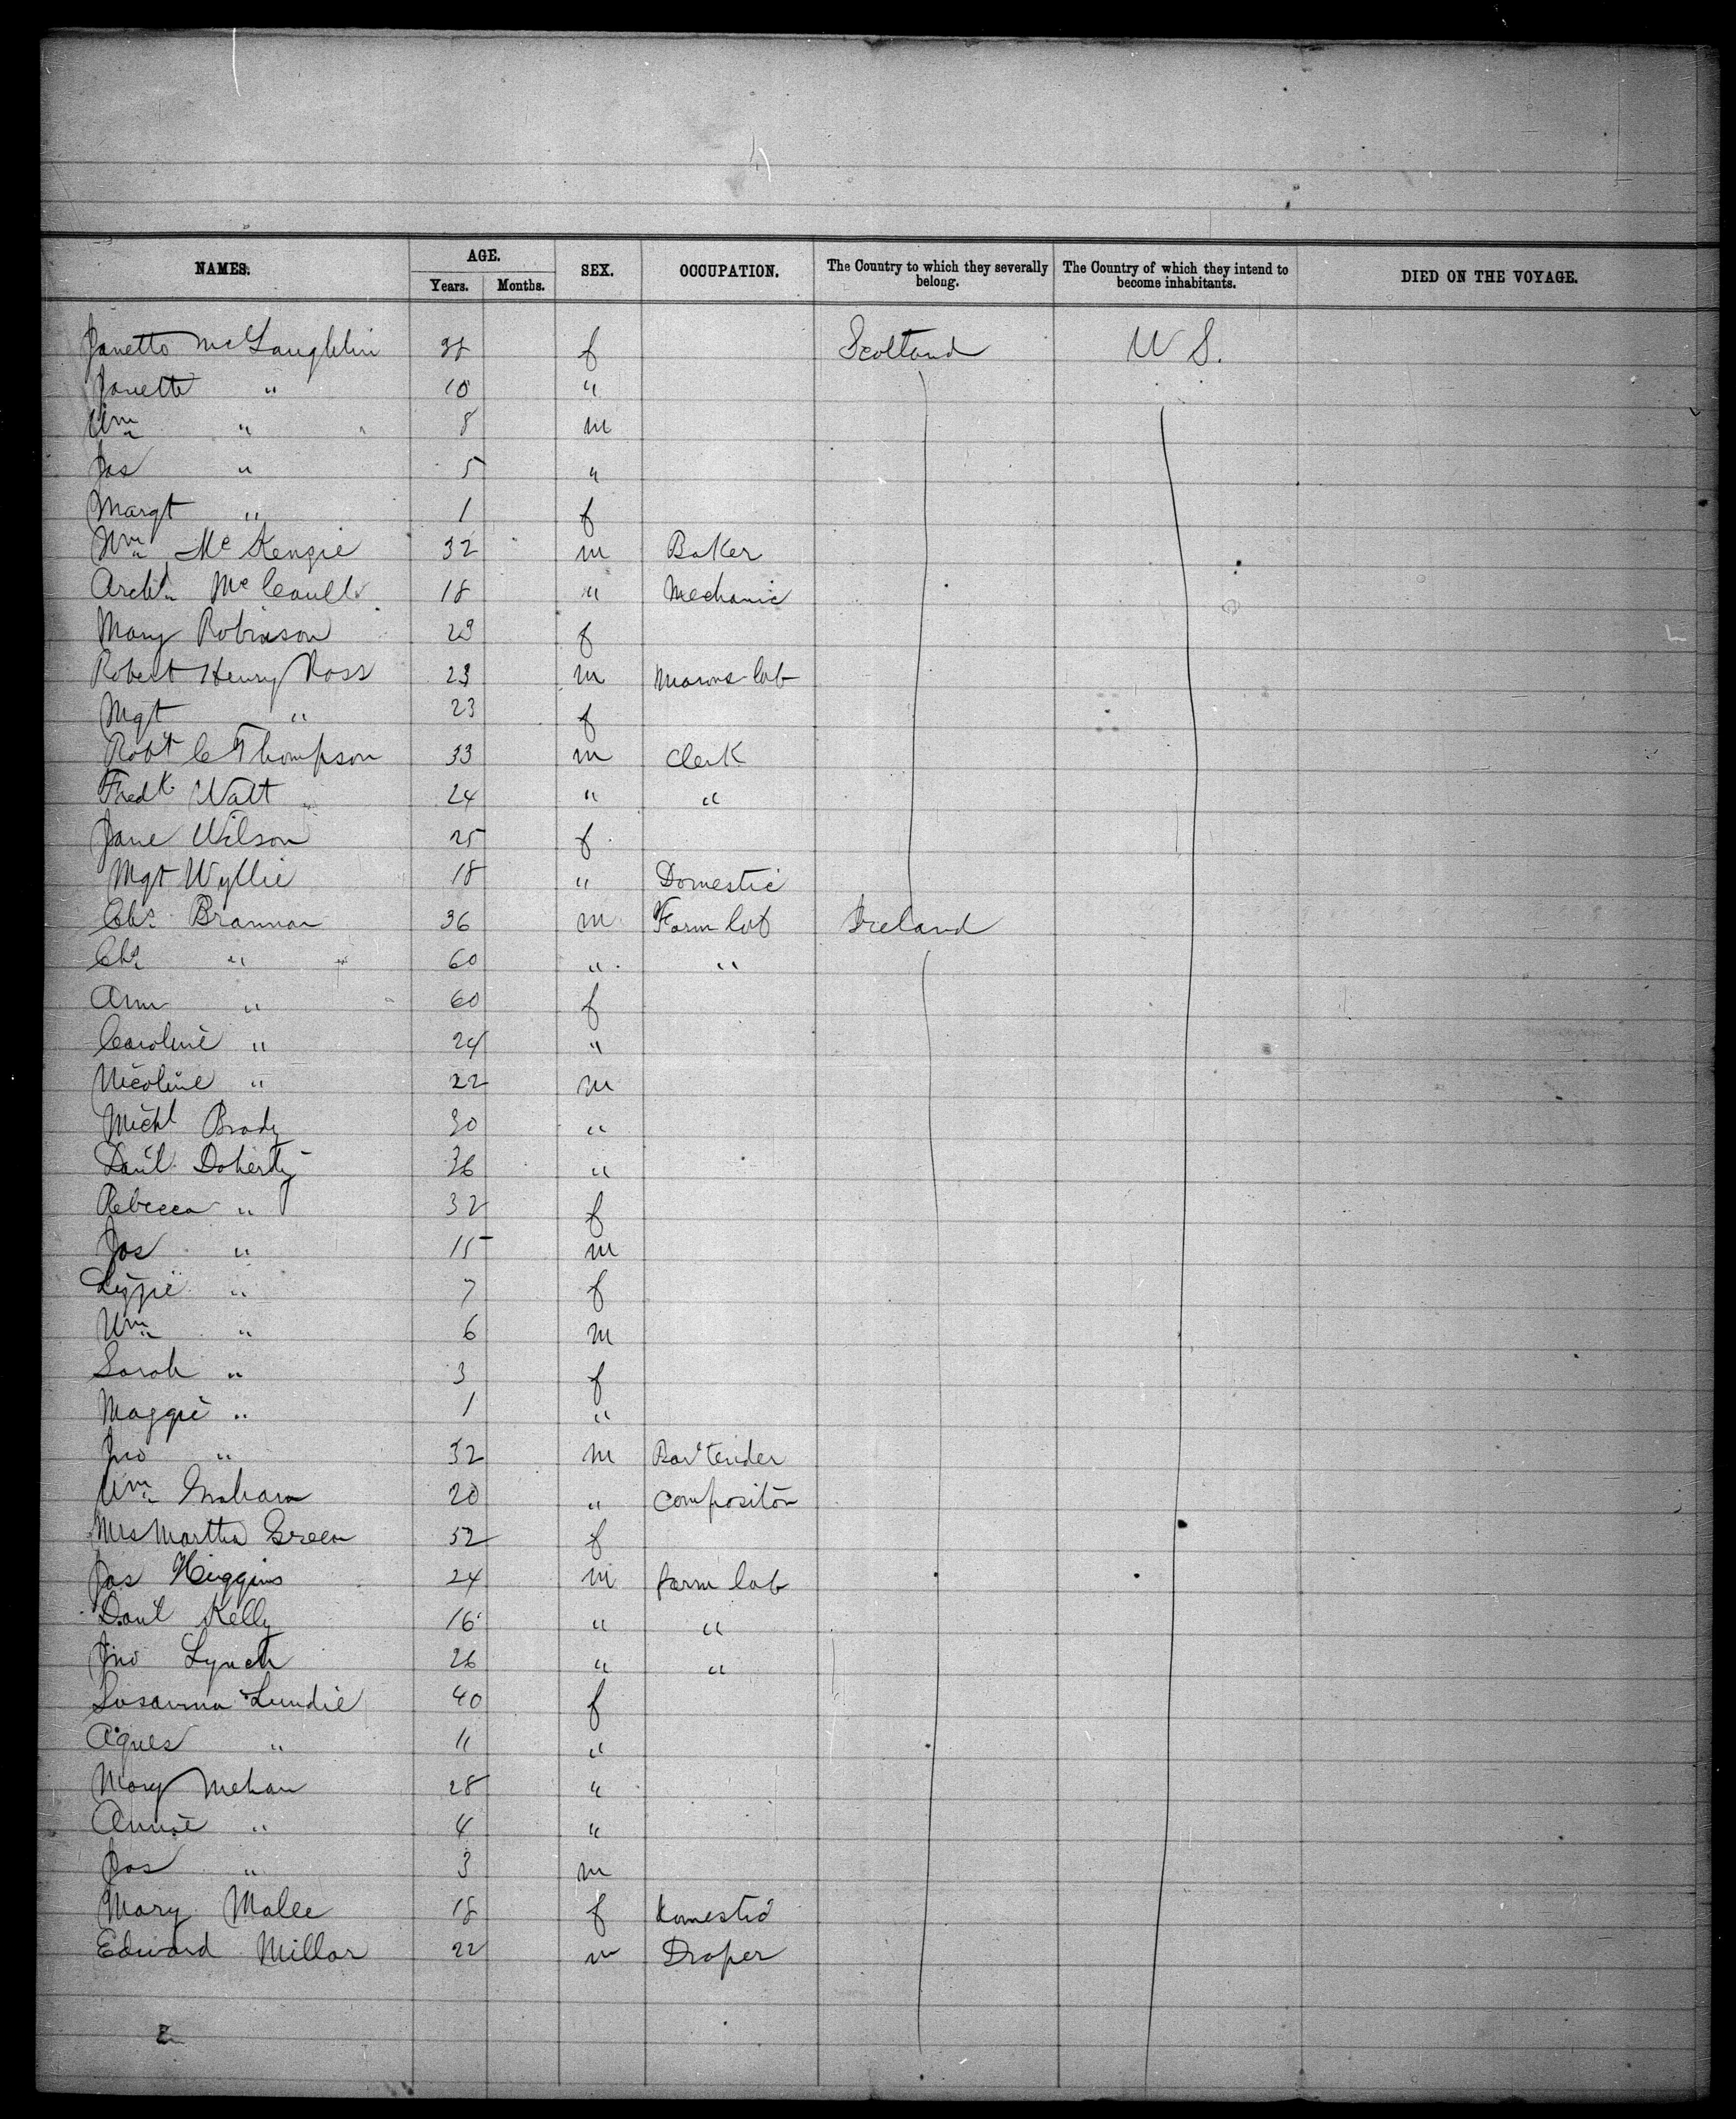 NAMES. AGE. SEX. OCCUPATION. The Country to which they severally belong. The Country of which they intend to become inhabitants. DIED ON THE VOYAGE.
Years. Months.
Janette McLaughlin 38 f Scotland U S.
Janette " 10 "
Wm " 8 m
Jas " 5 "
Margt " 1 f
Wm McKenzie 32 m Baker
Archd 18 " Mechanic
Mary Robinson 29 f
Robert Henry Ross 23 m Masons lab
Mgt " 23 f
Robt C Thompson 33 m Clerk
Fredk Watt 24 " "
Jane Wilson 25 f
Mgt Wyllie 18 " Domestic
Chs Brannan 36 m Farm lab Ireland
Chs " 60 " "
Ann " 60 f
Caroline " 24 "
Nicoline " 22 m
Michl Brady 30 "
Danl Doherty 36 "
Rebecca " 32 f
Jas " 15 m
Lizzie " 7 f
Wm " 6 m
Sarah " 3 f
Maggie " 1 "
Jno " 32 m Bar tender
Wm Graham 20 " Compositor
Mrs Martha Green 52 f
Jas Higgins 24 m farm lab
Danl Kelly 16 " "
Jno Lynch 26 " "
Susanna Lundie 40 f
Agnes " 11 "
Mary Mehan 28 "
Annie " 4 "
Jas " 3 m
Mary Malee 18 f Domestic
Edward Millar 22 m Draper